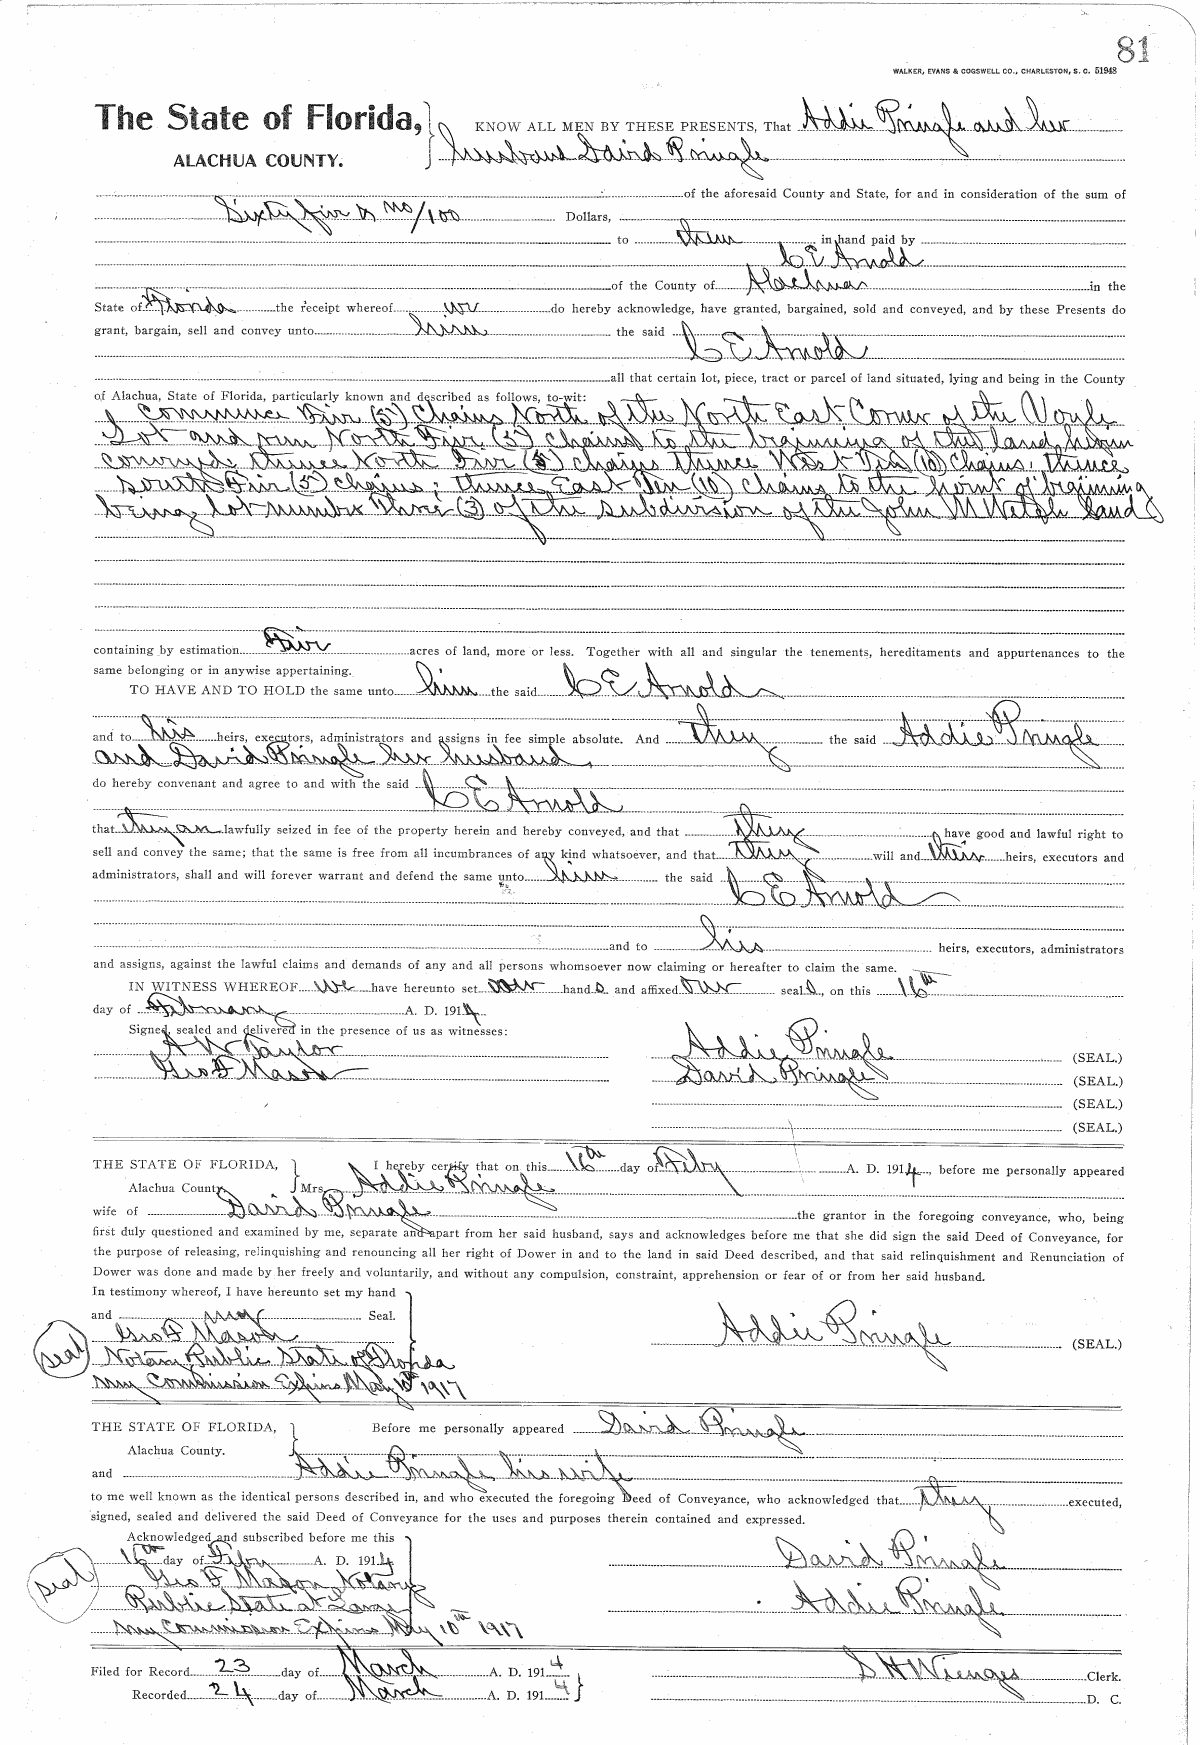 81
WALKER, EVANS & COGSWELL CO., CHARLESTON, S. C. 51948
The State of Florida,
ALACHUA COUNTY.
KNOW ALL MEN BY THESE PRESENTS, That Addie Pringle and her
husband David Pringle
of the aforesaid County and State, for and in consideration of the sum of
Sixty five & no/100 Dollars,
to them in hand paid by
C E Arnold
of the County of Alachua in the
State of Florida the receipt whereof we do hereby acknowledge, have granted, bargained, sold and conveyed, and by these Presents do
grant, bargain, sell and convey unto him the said C E Arnold
all that certain lot, piece, tract or parcel of land situated, lying and being in the County
of Alachua, State of Florida, particularly known and described as follows, to-wit:
Commence Five (5) Chains North of the North East Corner of the
Lot and run North Five (5) chains to the beginning of the land herein
conveyed; thence North Five (5) chains thence West Ten (10) Chains; thence
south Five (5) chains; thence East Ten (10) chains to the point of beginning
being lot number Three (3) of the subdivision of the John M Welsh Land
containing by estimation Five acres of land, more or less. Together with all and singular the tenements, hereditaments and appurtenances to the
same belonging or in anywise appertaining.
TO HAVE AND TO HOLD the same unto him the said C E Arnold
and to his heirs, executors, administrators and assigns in fee simple absolute. And they the said Addie Pringle
and David Pringle her husband,
do hereby convenant and agree to and with the said C E Arnold
that they are lawfully seized in fee of the property herein and hereby conveyed, and that they have good and lawful right to
sell and convey the same; that the same is free from all incumbrances of any kind whatsoever, and that they will and their heirs, executors and
administrators, shall and will forever warrant and defend the same unto him the said C E Arnold
and to his heirs, executors, administrators
and assigns, against the lawful claims and demands of any and all persons whomsoever now claiming or hereafter to claim the same.
IN WITNESS WHEREOF We have hereunto set our hands and affixed our seals, on this 16th
day of February A. D. 1914
Signed, sealed and delivered in the presence of us as witnesses:
A W Taylor
Geo F Mason
Addie Pringle (SEAL.)
David Pringle (SEAL.)
(SEAL.)
(SEAL.)
THE STATE OF FLORIDA,
Alachua County
I hereby certify that on this 16th day of Feby A. D. 1914, before me personally appeared
Mrs Addie Pringle
wife of David Pringle the grantor in the foregoing conveyance, who, being
first duly questioned and examined by me, separate and apart from her said husband, says and acknowledges before me that she did sign the said Deed of Conveyance, for
the purpose of releasing, relinquishing and renouncing all her right of Dower in and to the land in said Deed described, and that said relinquishment and Renunciation of
Dower was done and made by her freely and voluntarily, and without any compulsion, constraint, apprehension or fear of or from her said husband.
In testimony whereof, I have hereunto set my hand
and my Seal.
Geo F Mason
Addie Pringle (SEAL.)
seal
Notary Public State of Florida
my Commission Expires May 10th 1917
THE STATE OF FLORIDA,
Alachua County.
Before me personally appeared David Pringle
and Addie Pringle his wife
to me well known as the identical persons described in, and who executed the foregoing Deed of Conveyance, who acknowledged that they executed,
signed, sealed and delivered the said Deed of Conveyance for the uses and purposes therein contained and expressed.
Acknowledged and subscribed before me this
16th day of Feby A. D. 1914
seal
Geo F Mason, Notary
Public State at Large
my Commission Expires May 10th 1917
David Pringle
Addie Pringle
Filed for Record 23 day of March A. D. 1914
Recorded 24 day of March A. D. 1914
S H Wienges Clerk.
D. C.